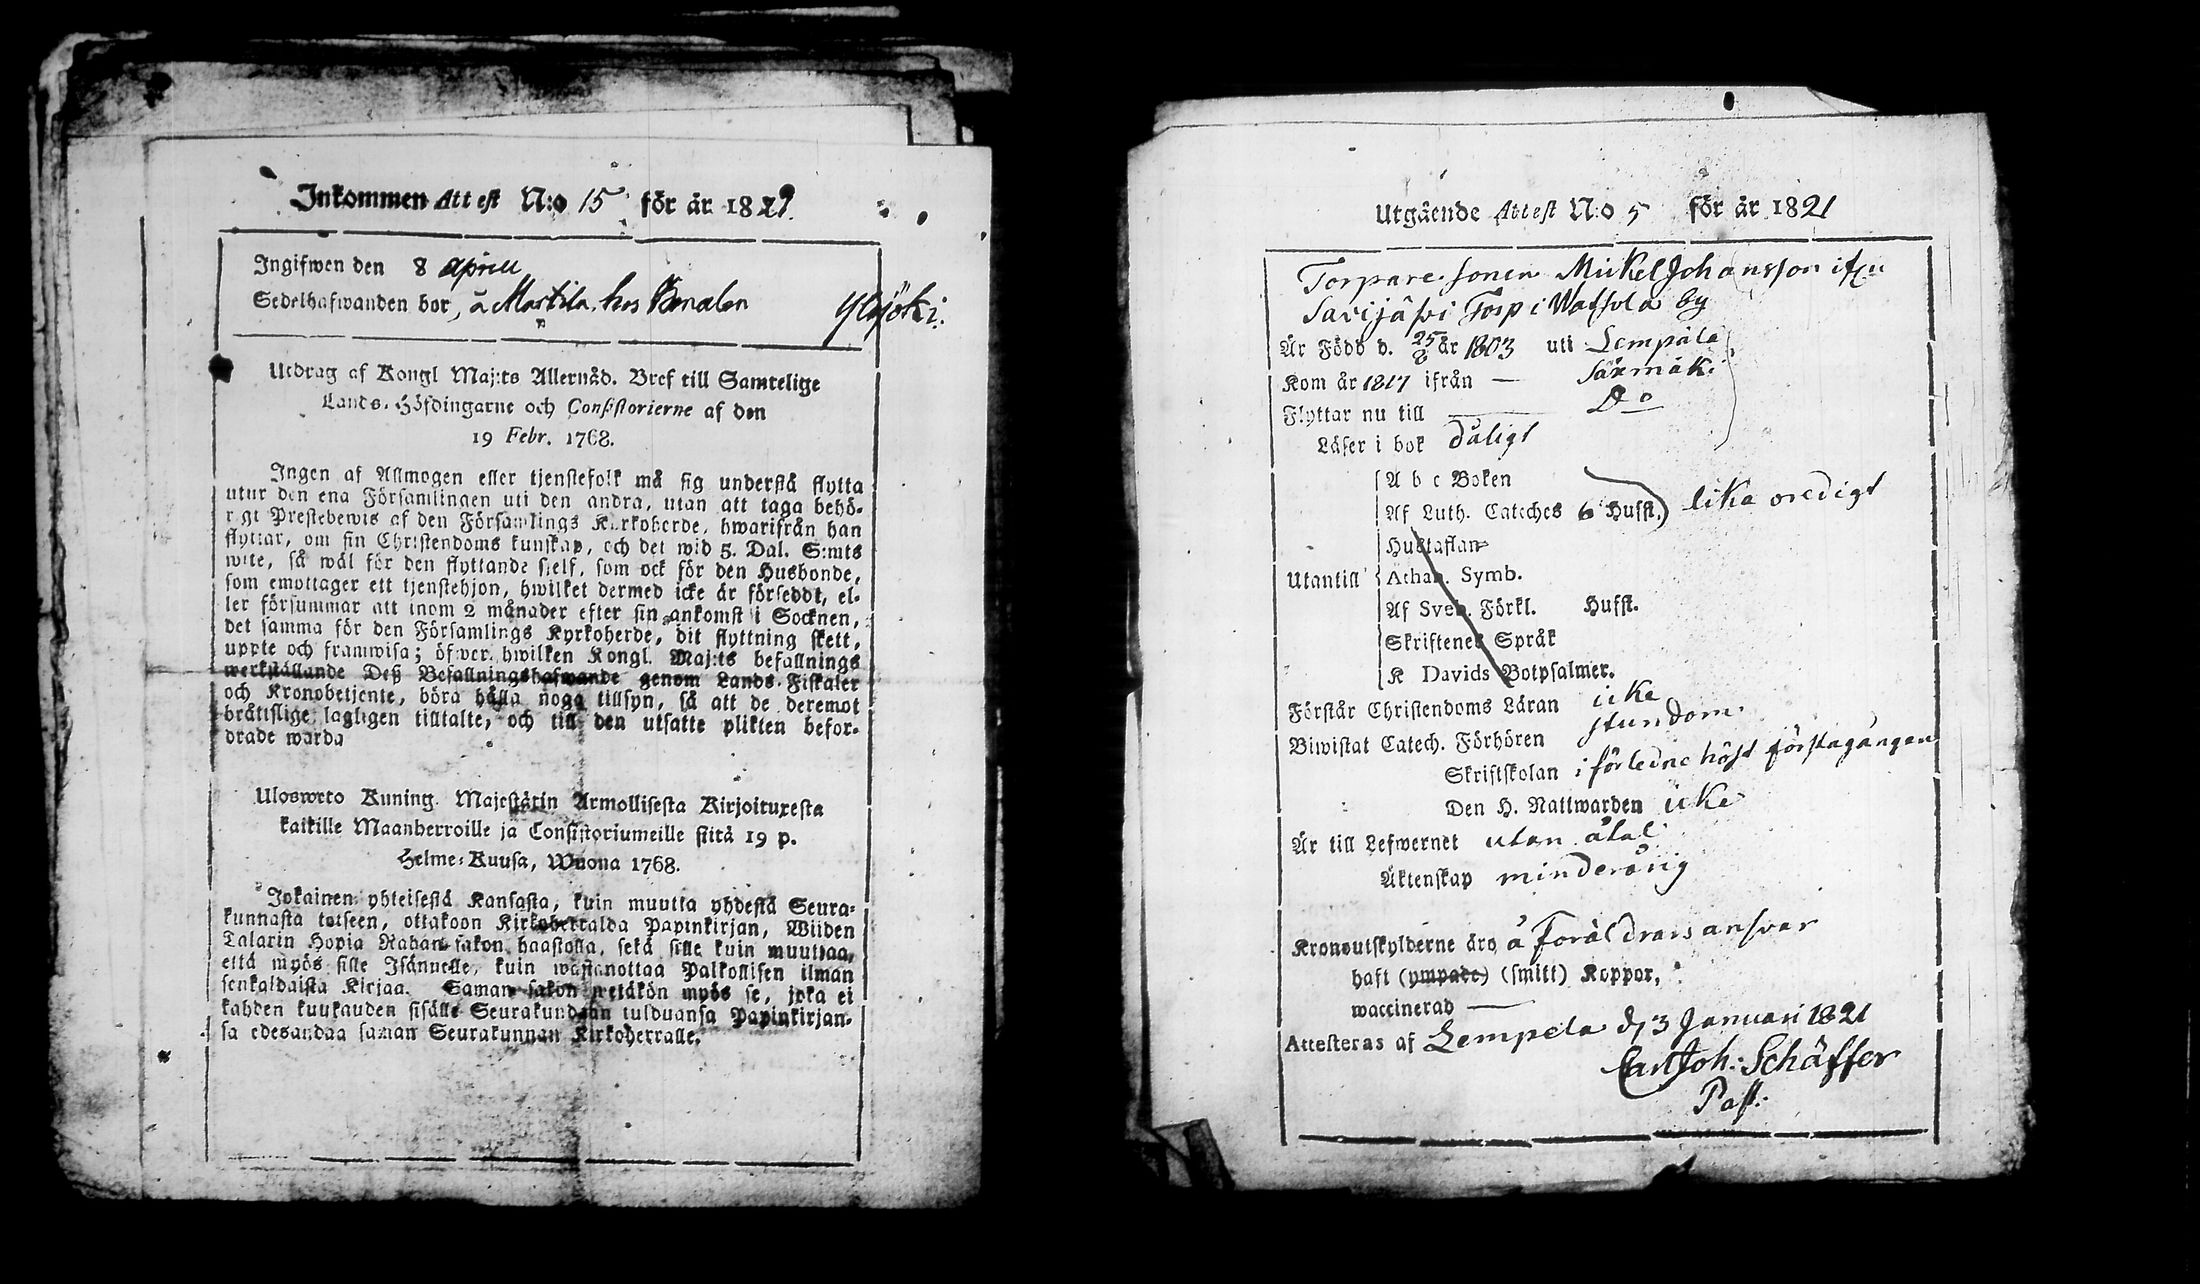 Inkommen Attest N:o 15 för år 1821.
Ingifwen den 8 Aprill
Sedelhafwanden bor, å Martila hos
Ylöjöki.
Utdrag af Kongl Maj:ts Allernåd. Bref till Samtelige
Lands-Höfdingarne och Consistorierne af den
19 Febr. 1768.
Ingen af Allmogen eller tjenstefolk må sig understå flytta
utur den ena Församlingen uti den andra, utan att taga behö-
rigt Prestebewis af den Församlings Kyrkoherde, hwarifrån han
flyttar, om sin Christendoms kunskap, och det wid 5. Dal. S:mts
wite, så wäl för den flyttande sjelf, som ock för den Husbonde,
som emottager ett tjenstehjon, hwilket dermed icke är försedt, el-
ler försummar att inom 2 månader efter sin ankomst i Socknen,
det samma för den Församlings Kyrkoherde, dit flyttning skett,
uppte och framwisa; öfwer hwilken Kongl. Maj:ts befallnings
werkställande Deß Befallningshafwande genom Lands-Fiskaler
och Kronobetjente, böra hålla noga tillsyn, så att de deremot
bråttslige lagligen tilltalte, och till den utsatte plikten befor-
drade warda
Ulosweto Kuning. Majestätin Armollisesta Kirjoituxesta
kaikille Maanherroille ja Consistoriumeille siitä 19 p.
Helme-Kuusa, Wuona 1768.
Jokainen yhteisestä Kansasta, kuin muutta yhdestä Seura-
kunnasta toiseen, ottakoon Kirkoherralda Papinkirjan, Wiiden
Talarin Hopia Rahan sakon haastolla, sekä sille kuin muuttaa,
että myös sille Isännelle, kuin wastanottaa Palkollisen ilman
senkaldaista Kirjaa. Saman sakon wetäkön myös se, joka ei
kahden kuukauden sisälle Seurakundaan tulduansa Papinkirjan-
sa edesandaa saman Seurakunnan Kirkoherralle.
Utgående Attest N:o 5 för år 1821
Torpare sonen Mickel Johansson ifrån
Savijäwi Torp i Watsola by
Är Född d. 25/8 år 1803 uti Lempäla
Kom år 1817 ifrån — Särmäki
Flyttar nu till — Do
Läser i bok dåligt
Utantill
A b c Boken
Af Luth. Cateches 6 Hufst. lika oredigt
Hustaflan
Athan. Symb.
Af Sveb. Förkl. Hufst.
Skriftenes Språk
K Davids Botpsalmer.
Förstår Christendoms Läran icke
Biwistat Catech. Förhören stundom
Skriftskolan i förledne höst förstagången
Den H. Nattwarden icke
Är till Lefwernet utan åtal
Äktenskap minderårig
Kronoutskylderne äro å Föräldrars answar
haft (ympade) (smitt) Koppor,
waccinerad —
Attesteras af Lempela d. 3 Januari 1821
Carl Joh: Schäffer
Past: